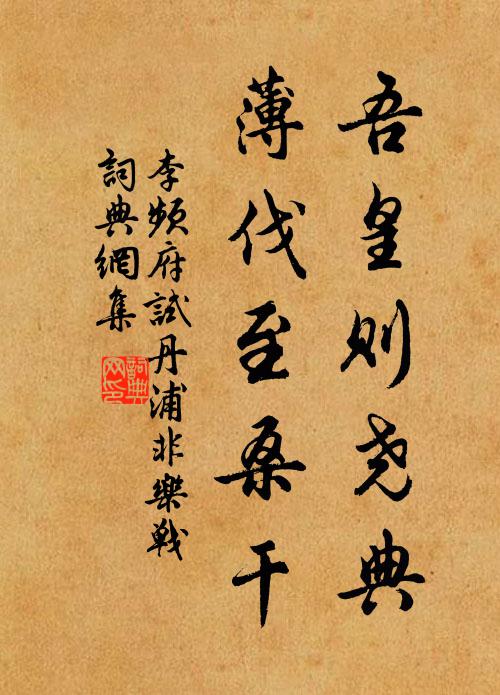 吾皇则尧典
薄伐至桑干
李频府試丹浦非樂戰
詞典網集
詞典網印